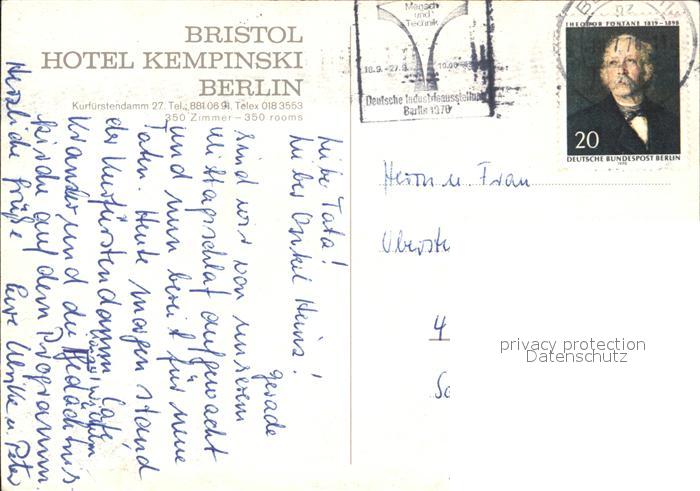 BRISTOL
HOTEL KEMPINSKI
BERLIN
Kurfürstendamm 27. Tel.: 8810691, Telex 018 3553
350 Zimmer – 350 rooms
Liebe Tata!
Lieber Onkel Heinz!
gerade
sind wir von unserem
Mittagsschlaf aufgewacht
und nun bereit für neue
Taten. Heute morgen stand
der Kurfürstendamm, Café
Kranzler und die Gedächtnis-
kirche auf dem Programm.
Herzliche Grüße Eure Ulrike u. Peter
Mensch
und
Technik
18.9. - 27.9.
Deutsche Industrieausstellung
Berlin 1970
THEODOR FONTANE 1819–1898
20
DEUTSCHE BUNDESPOST BERLIN
1970
Herrn u. Frau
Oberste
4
privacy protection
Datenschutz